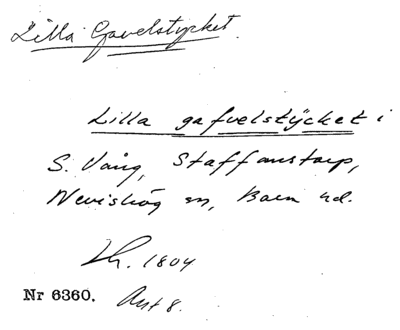 Lilla Gavelstycket.
Lilla gafvelstycket i
S. Vång, Staffanstorp,
Nevishög sn, Bara hd.
Lh. 1804
Nr 6360. Akt 8.